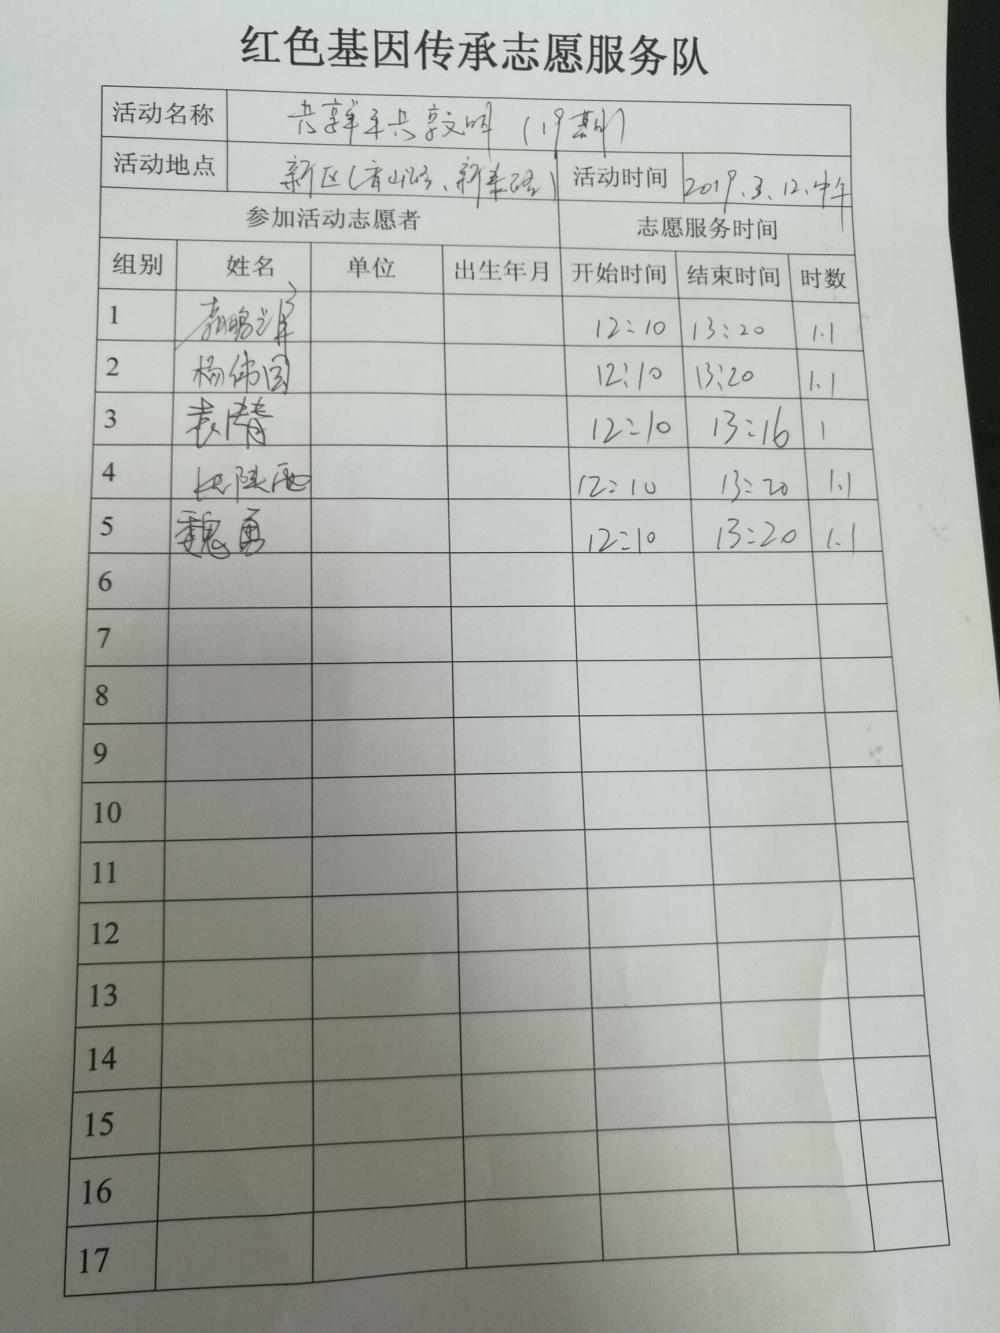 红色基因传承志愿服务队
活动名称 共享单车共享文明（19期）
活动地点 新区（青山路、新泰路） 活动时间 2019.3.12.中午
参加活动志愿者 志愿服务时间
组别 姓名 单位 出生年月 开始时间 结束时间 时数
1 12:10 13:20 1.1
2 杨伟国 12:10 13:20 1.1
3 袁清 12:10 13:16 1
4 12:10 13:20 1.1
5 魏勇 12:10 13:20 1.1
6
7
8
9
10
11
12
13
14
15
16
17